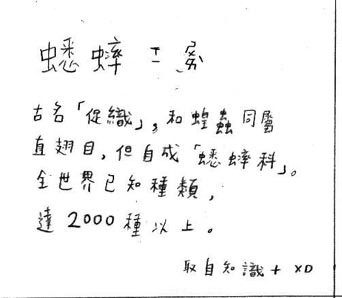 蟋蟀工房
古名「促織」,和蝗蟲同屬
直翅目,但自成「蟋蟀科」。
全世界已知種類,
達2000種以上。
取自知識+ XD